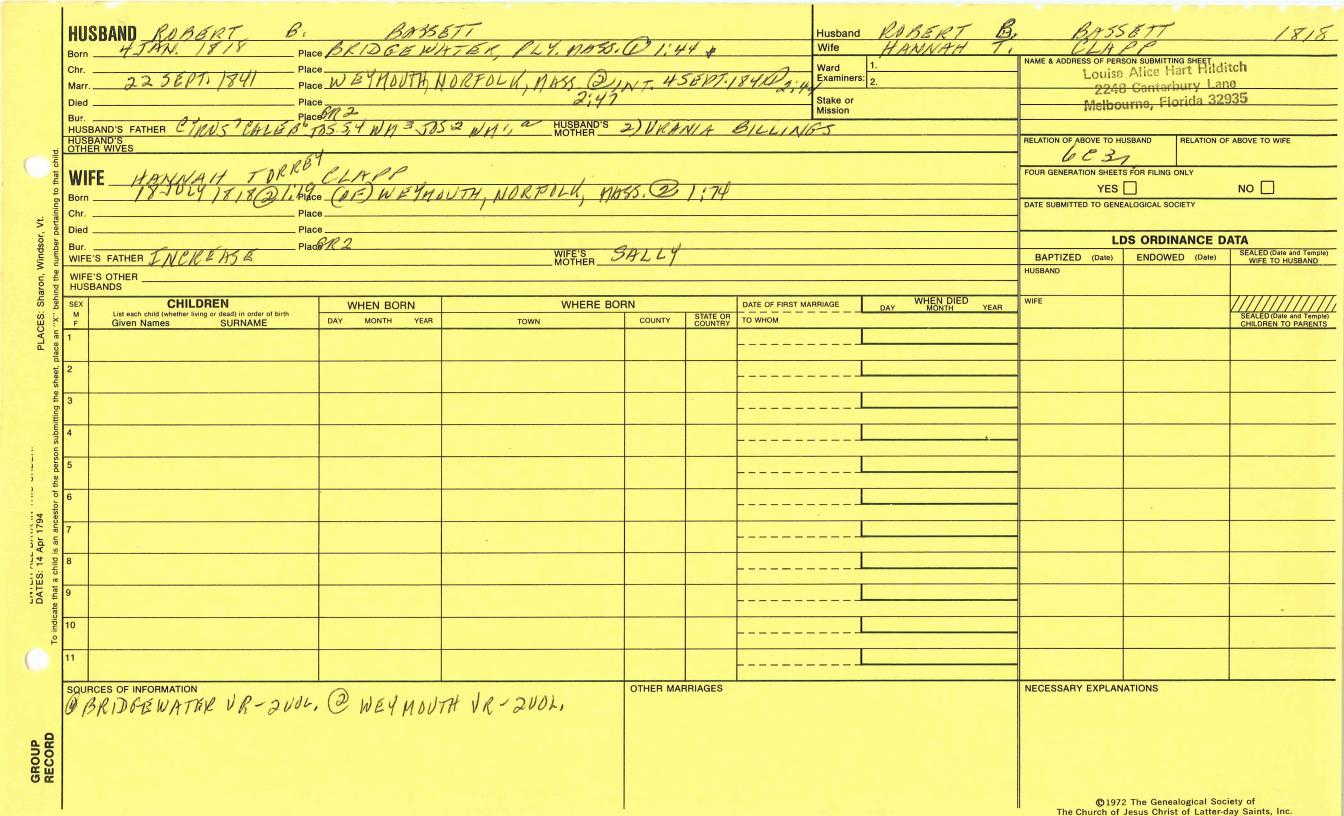 HUSBAND ROBERT B. BASSETT
Born 4 JAN. 1818 Place BRIDGEWATER, PLY. MASS. ① 1:44
Chr. Place
Marr. 22 SEPT. 1841 Place WEYMOUTH, NORFOLK, MASS. ② INT. 4 SEPT. 1841 ② 2:47
2:47
Died Place
Bur. Place GR2
HUSBAND'S FATHER CYRUS CALEB JOS 4 WM 3 JOS 2 WM HUSBAND'S MOTHER 2) URANIA BILLINGS
HUSBAND'S OTHER WIVES
WIFE HANNAH TORREY CLAPP
Born 18 JULY 1818 ② 1:19 Place (OF) WEYMOUTH, NORFOLK, MASS. ② 1:74
Chr. Place
Died Place
Bur. Place GR2
WIFE'S FATHER INCREASE WIFE'S MOTHER SALLY
WIFE'S OTHER HUSBANDS
Husband ROBERT B. BASSETT 1818
Wife HANNAH T. CLAPP
Ward Examiners: 1.
2.
Stake or Mission
NAME & ADDRESS OF PERSON SUBMITTING SHEET
Louise Alice Hart Hilditch
2248 Canterbury Lane
Melbourne, Florida 32935
RELATION OF ABOVE TO HUSBAND RELATION OF ABOVE TO WIFE
6C3r
FOUR GENERATION SHEETS FOR FILING ONLY
YES NO
DATE SUBMITTED TO GENEALOGICAL SOCIETY
LDS ORDINANCE DATA
BAPTIZED (Date) ENDOWED (Date) SEALED (Date and Temple) WIFE TO HUSBAND
HUSBAND
WIFE
SEALED (Date and Temple) CHILDREN TO PARENTS
SEX M F
CHILDREN
List each child (whether living or dead) in order of birth
Given Names SURNAME
WHEN BORN
DAY MONTH YEAR
WHERE BORN
TOWN COUNTY STATE OR COUNTRY
DATE OF FIRST MARRIAGE
TO WHOM
WHEN DIED
DAY MONTH YEAR
1
2
3
4
5
6
7
8
9
10
11
SOURCES OF INFORMATION
① BRIDGEWATER VR-2VOL. ② WEYMOUTH VR-2VOL.
OTHER MARRIAGES
NECESSARY EXPLANATIONS
©1972 The Genealogical Society of
The Church of Jesus Christ of Latter-day Saints, Inc.
PLACES: Sharon, Windsor, Vt.
DATES: 14 Apr 1794
To indicate that a child is an ancestor of the person submitting the sheet, place an "X" behind the number pertaining to that child.
GROUP RECORD